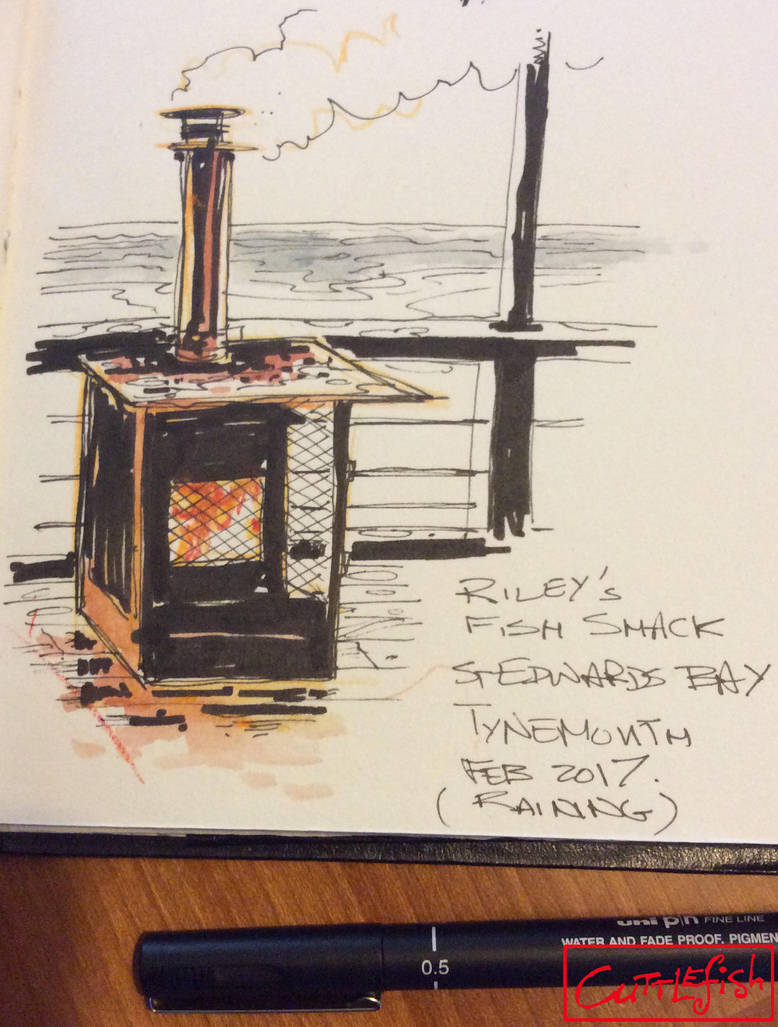 RILEY'S
FISH SHACK
ST EDWARDS BAY
TYNEMOUTH
FEB 2017.
(RAINING)
uni pin FINE LINE
0.5
WATER AND FADE PROOF, PIGMEN
CUTTLEfish